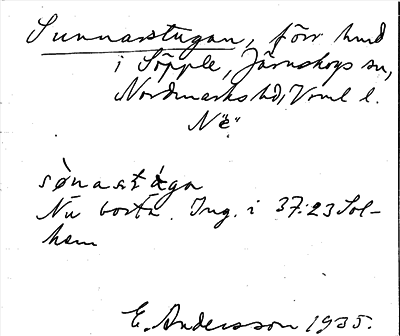 Sunnarstugan, förr hmd
i Söpple, Järnskogs sn,
Nordmarks hd, Vrml l.
N"e"
sònastúga
Nu borta. Ing. i 37:23 Sol-
hem
E. Andersson 1935.